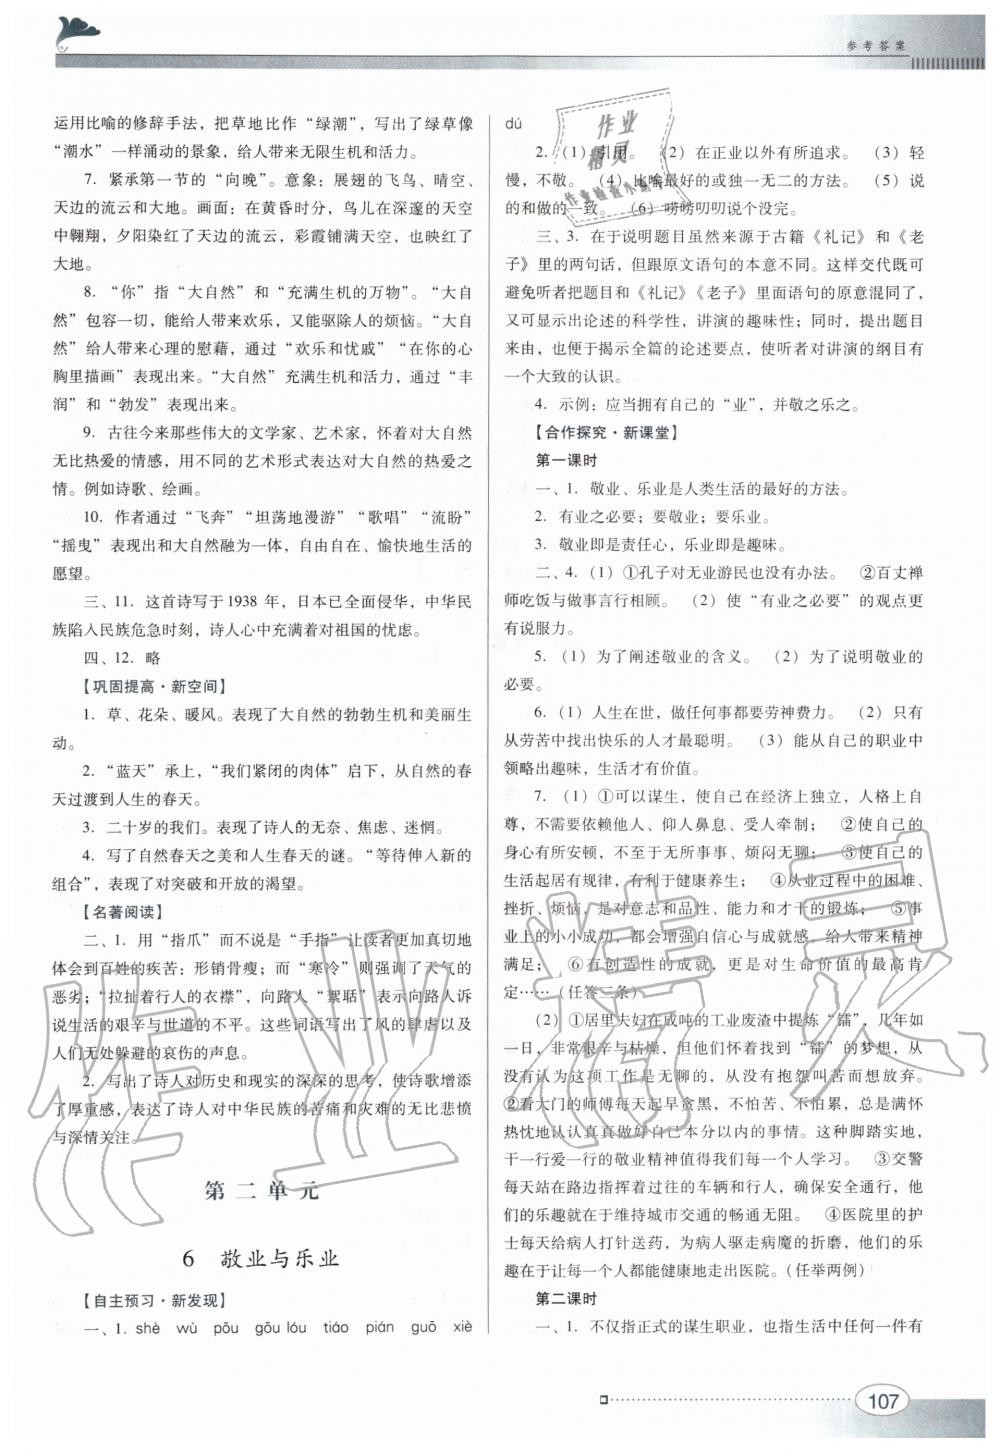 参考答案
运用比喻的修辞手法，把草地比作“绿潮”，写出了绿草像
“潮水”一样涌动的景象，给人带来无限生机和活力。
7．紧承第一节的“向晚”。意象：展翅的飞鸟、晴空、
天边的流云和大地。画面：在黄昏时分，鸟儿在深邃的天空
中翱翔，夕阳染红了天边的流云，彩霞铺满天空，也映红了
大地。
8．“你”指“大自然”和“充满生机的万物”。“大自
然”包容一切，能给人带来欢乐，又能驱除人的烦恼。“大自
然”给人带来心理的慰藉，通过“欢乐和忧戚”“在你的心
胸里描画”表现出来。“大自然”充满生机和活力，通过“丰
润”和“勃发”表现出来。
9．古往今来那些伟大的文学家、艺术家，怀着对大自然
无比热爱的情感，用不同的艺术形式表达对大自然的热爱之
情。例如诗歌、绘画。
10．作者通过“飞奔”“坦荡地漫游”“歌唱”“流盼”
“摇曳”表现出和大自然融为一体，自由自在、愉快地生活的
愿望。
三、11．这首诗写于1938 年，日本已全面侵华，中华民
族陷入民族危急时刻，诗人心中充满着对祖国的忧虑。
四、12．略
【巩固提高·新空间】
1．草、花朵、暖风。表现了大自然的勃勃生机和美丽生
动。
2．“蓝天”承上，“我们紧闭的肉体”启下，从自然的春
天过渡到人生的春天。
3．二十岁的我们。表现了诗人的无奈、焦虑、迷惘。
4．写了自然春天之美和人生春天的谜。“等待伸入新的
组合”，表现了对突破和开放的渴望。
【名著阅读】
二、1．用“指爪”而不说是“手指”让读者更加真切地
体会到百姓的疾苦；形销骨瘦；而“寒冷”则强调了天气的
恶劣；“拉扯着行人的衣襟”，向路人“絮聒”表示向路人诉
说生活的艰辛与世道的不平。这些词语写出了风的肆虐以及
人们无处躲避的哀伤的声息。
2．写出了诗人对历史和现实的深深的思考，使诗歌增添
了厚重感，表达了诗人对中华民族的苦痛和灾难的无比悲愤
与深情关注。
第二单元
6 敬业与乐业
【自主预习·新发现】
一、1．shè wù pōu gōu lóu tiáo pián guō xiè
dú
2．（1）引用。 （2）在正业以外有所追求。 （3）轻
慢，不敬。 （4）比喻最好的或独一无二的方法。 （5）说
的和做的一致。 （6）唠唠叨叨说个没完。
三、3．在于说明题目虽然来源于古籍《礼记》和《老
子》里的两句话，但跟原文语句的本意不同。这样交代既可
避免听者把题目和《礼记》《老子》里面语句的原意混同了，
又可显示出论述的科学性，讲演的趣味性；同时，提出题目
来由，也便于揭示全篇的论述要点，使听者对讲演的纲目有
一个大致的认识。
4．示例：应当拥有自己的“业”，并敬之乐之。
【合作探究·新课堂】
第一课时
一、1．敬业、乐业是人类生活的最好的方法。
2．有业之必要；要敬业；要乐业。
3．敬业即是责任心，乐业即是趣味。
二、4．（1）①孔子对无业游民也没有办法。 ②百丈禅
师吃饭与做事言行相顾。 （2）使“有业之必要”的观点更
有说服力。
5．（1）为了阐述敬业的含义。 （2）为了说明敬业的
必要。
6．（1）人生在世，做任何事都要劳神费力。 （2）只有
从劳苦中找出快乐的人才最聪明。 （3）能从自己的职业中
领略出趣味，生活才有价值。
7．（1）①可以谋生，使自己在经济上独立，人格上自
尊，不需要依赖他人、仰人鼻息、受人牵制； ②使自己的
身心有所安顿，不至于无所事事、烦闷无聊； ③使自己的
生活起居有规律，有利于健康养生； ④从业过程中的困难、
挫折、烦恼，是对意志和品性、能力和才干的锻炼； ⑤事
业上的小小成功，都会增强自信心与成就感，给人带来精神
满足； ⑥有创造性的成就，更是对生命价值的最高肯
定……（任答三条）
（2）①居里夫妇在成吨的工业废渣中提炼“镭”，几年如
一日，非常艰辛与枯燥，但他们怀着找到“镭”的梦想，从
没有认为这项工作是无聊的，从没有抱怨叫苦而想放弃。
②看大门的师傅每天起早贪黑，不怕苦、不怕累，总是满怀
热忱地认认真真做好自己本分以内的事情。这种脚踏实地、
干一行爱一行的敬业精神值得我们每一个人学习。 ③交警
每天站在路边指挥着过往的车辆和行人，确保安全通行，他
们的乐趣就在于维持城市交通的畅通无阻。 ④医院里的护
士每天给病人打针送药，为病人驱走病魔的折磨，他们的乐
趣在于让每一个人都能健康地走出医院。（任举两例）
第二课时
一、1．不仅指正式的谋生职业，也指生活中任何一件有
107
作业精灵